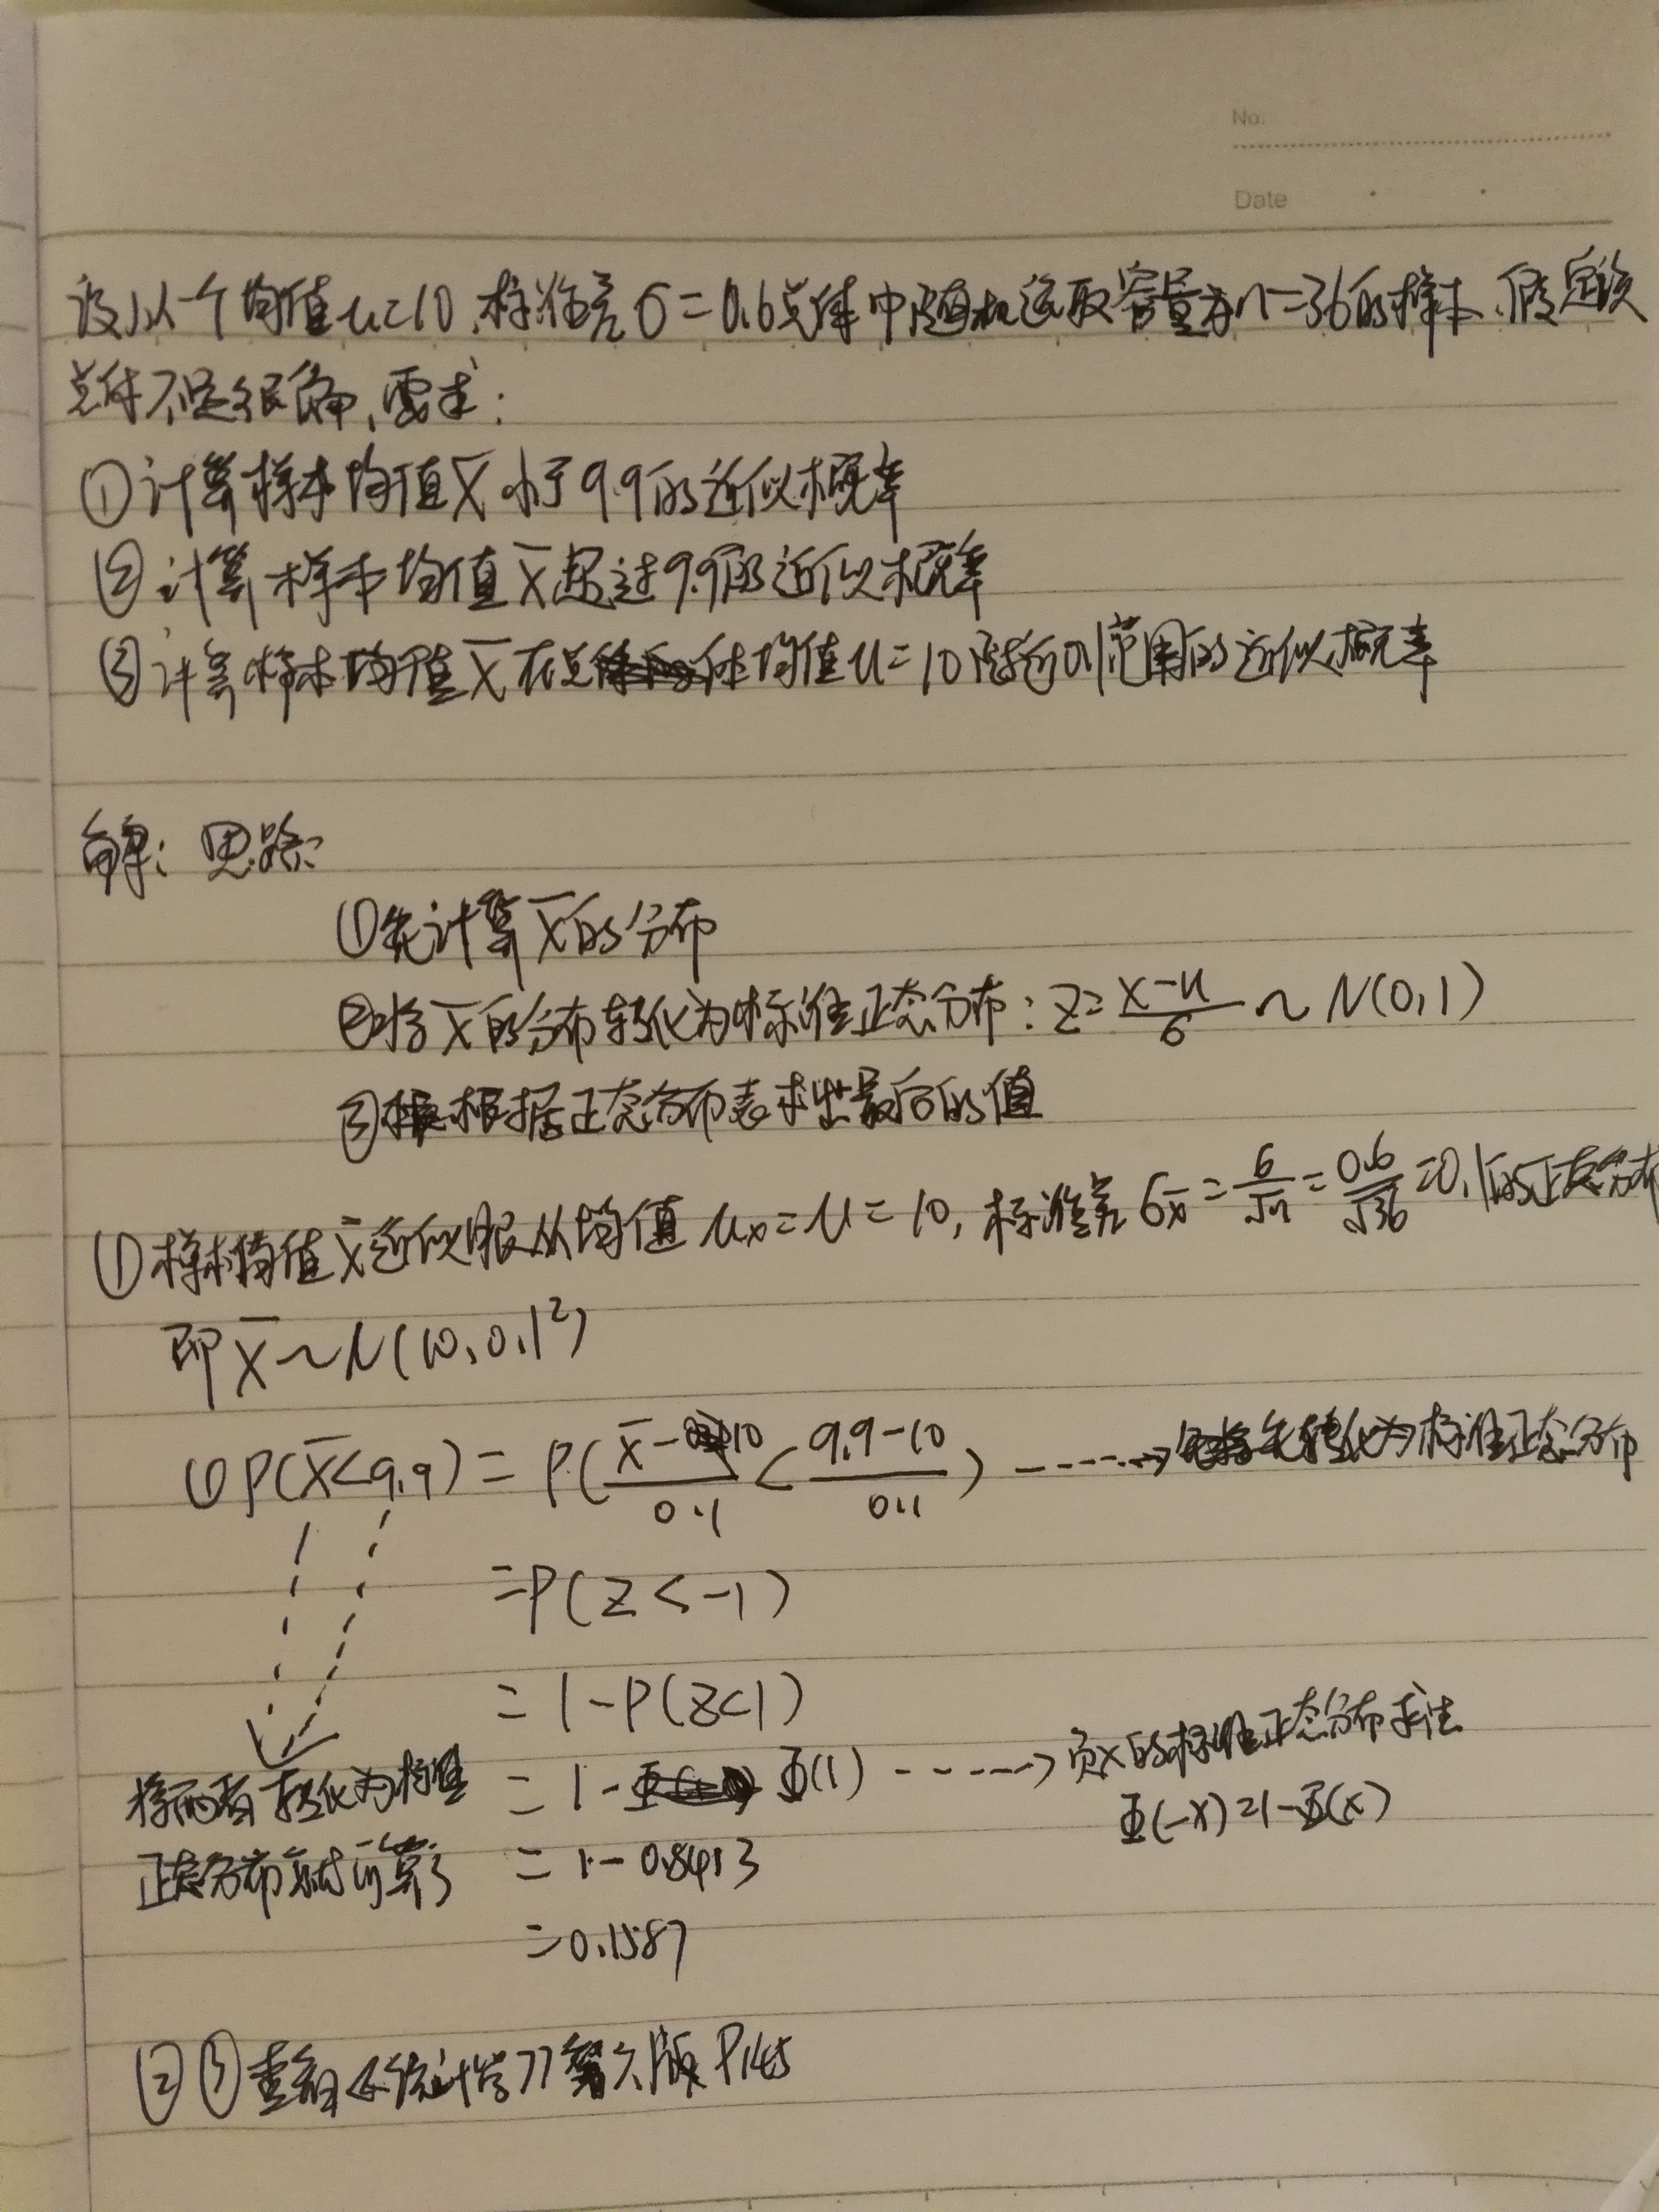 No.
Date
设从一个均值u=10,标准差σ=0.6总体中随机选取容量为n=36的样本,假定该
总体不是很偏,要求:
①计算样本均值x̄小于9.9的近似概率
②计算样本均值x̄超过9.9的近似概率
③计算样本均值x̄在总体均值u=10附近0.1范围的近似概率
解:思路:
①先计算x̄的分布
②将x̄的分布转化为标准正态分布:Z=(x-u)/σ ~ N(0,1)
③根据正态分布表求出最后的值
①样本均值x̄近似服从均值 ux=u=10,标准差 σx̄=σ/√n=0.6/√36=0.1的正态分布
即x̄~N(10,0.1²)
①P(x̄<9.9)=P((x̄-10)/0.1<(9.9-10)/0.1) ------> 先转化为标准正态分布
=P(Z<-1)
=1-P(Z<1)
=1-Φ(1) -----> 负x的标准正态分布求法
Φ(-x)=1-Φ(x)
将两者转化为标准
正态分布就可算了
=1-0.8413
=0.1587
②③查看《统计学》第六版P145